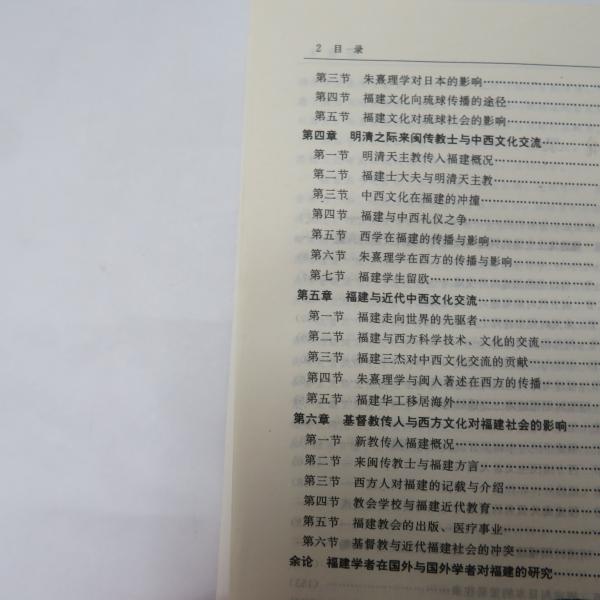 2 目录
第三节 朱熹理学对日本的影响
第四节 福建文化向琉球传播的途径
第五节 福建文化对琉球社会的影响
第四章 明清之际来闽传教士与中西文化交流
第一节 明清天主教传入福建概况
第二节 福建士大夫与明清天主教
第三节 中西文化在福建的冲撞
第四节 福建与中西礼仪之争
第五节 西学在福建的传播与影响
第六节 朱熹理学在西方的传播与影响
第七节 福建学生留欧
第五章 福建与近代中西文化交流
第一节 福建走向世界的先驱者
第二节 福建与西方科学技术、文化的交流
第三节 福建三杰对中西文化交流的贡献
第四节 朱熹理学与闽人著述在西方的传播
第五节 福建华工移居海外
第六章 基督教传入与西方文化对福建社会的影响
第一节 新教传入福建概况
第二节 来闽传教士与福建方言
第三节 西方人对福建的记载与介绍
第四节 教会学校与福建近代教育
第五节 福建教会的出版、医疗事业
第六节 基督教与近代福建社会的冲突
余论 福建学者在国外与国外学者对福建的研究